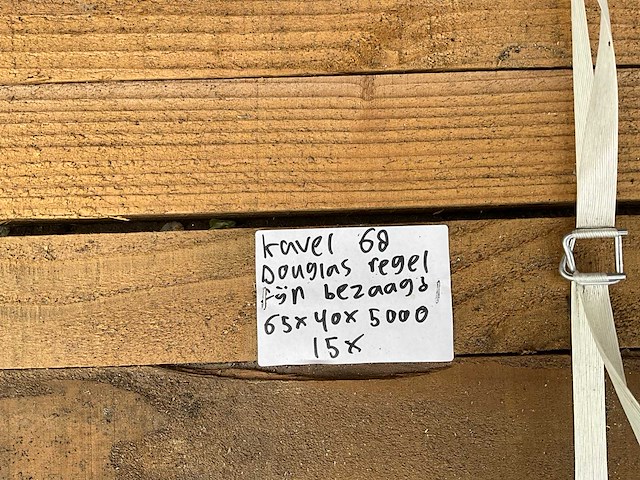 kavel 68
Douglas regel
fijn bezaagd
65x40x5000
15x